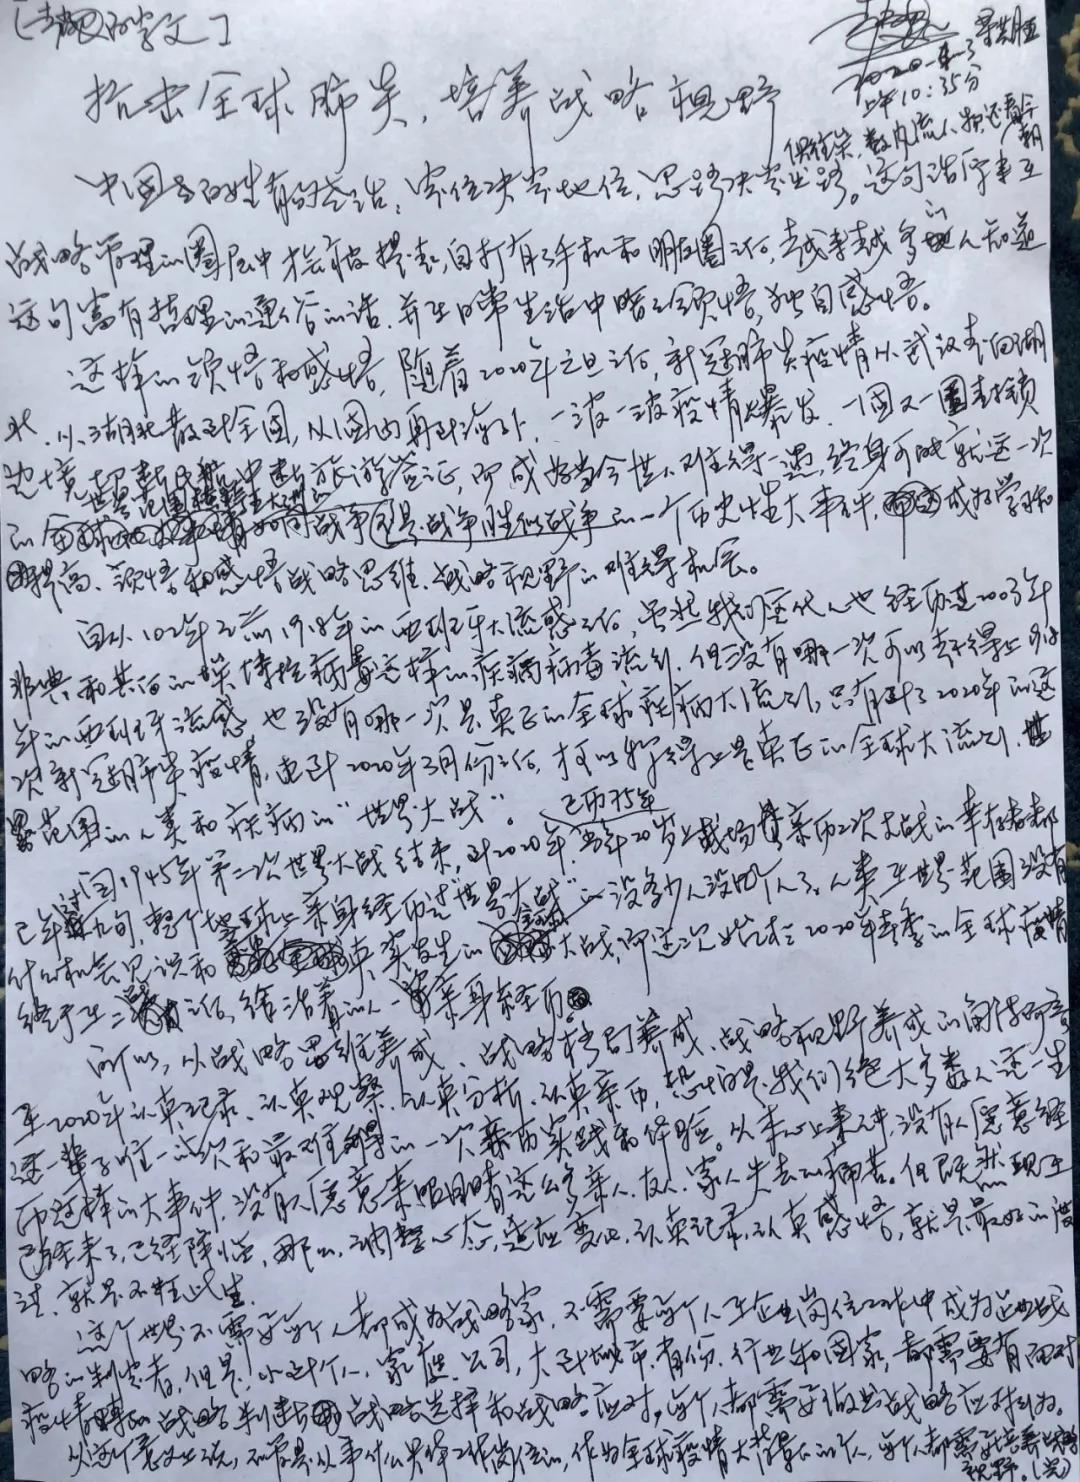 2020-4-3
上午10:35分
抗击全球肺炎,培养战略视野
俱往矣,数风流人物还看今朝
中国老百姓有句老话,定位决定地位,思路决定出路。这句话
战略管理的圈层中才会被提起,自打有了手机和朋友圈之后,越来越多的人知道
这句富有哲理的通俗的话,并在日常生活中暗暗领悟,独自感悟。
这样的领悟和感悟,随着2020年元旦之后,新冠肺炎疫情从武汉走向湖
北,从湖北散到全国,从国内再到海外,一波一波疫情爆发,一国又一国封锁
边境,中断旅游签证,即成为当今世人难得一遇,终身可能就这一次
世界范围
的 不是战争胜似战争的一个历史性大事件,成为学习和
提高、领悟和感悟战略思维、战略视野的难得机会。
自从102年之前1918年的西班牙大流感之后,虽然我们这代人也经历过2003年
非典和其后的埃博拉病毒这样的疾病病毒流行,但没有哪一次可以称得上1918
年的西班牙流感,也没有哪一次是真正的全球疾病大流行,只有到了2020年的这
次新冠肺炎疫情,直到2020年3月份之后,才可以称得上是真正的全球大流行,世
界范围的人类和疾病的“世界大战”。
已历75年
自1945年第二次世界大战结束,到2020年,当年20岁上战场亲历二次大战的幸存者都
已年过九旬,整个地球上亲身经历过“世界大战”的没多少人没几个人了。人类在世界范围没有
什么机会见识和真实发生的大战,即这次始于2020年春季的全球疫情
终于在二战之后,给活着的人一次亲身经历。
所以,从战略思维养成、战略格局养成、战略视野养成的角度
在2020年认真记录、认真观察、认真分析、认真亲历,恐怕是我们绝大多数人这一生
这一辈子唯一一次和最难得的一次亲历实践和体验。从本心上来讲,没有人愿意经
历这样的大事件,没有人愿意亲眼目睹这么多亲人、友人、家人失去的痛苦。但既然现在
已经来了,已经降临,那么,调整心态,适应变化,认真记录,认真感悟,就是最好的度
过,就是不枉此生。
这个世界不需要每个人都成为战略家,不需要每个人在企业岗位工作中成为企业战
略的制定者,但是,小到个人、家庭、公司,大到城市、省份、行业和国家,都需要有面对
疫情的战略判断、战略选择和战略应对,每个人都需要做出战略应对行为。
从这个意义上说,不管是从事什么具体工作岗位的,作为全球疫情大背景下的个人,每个人都需要培养战略
视野(完)